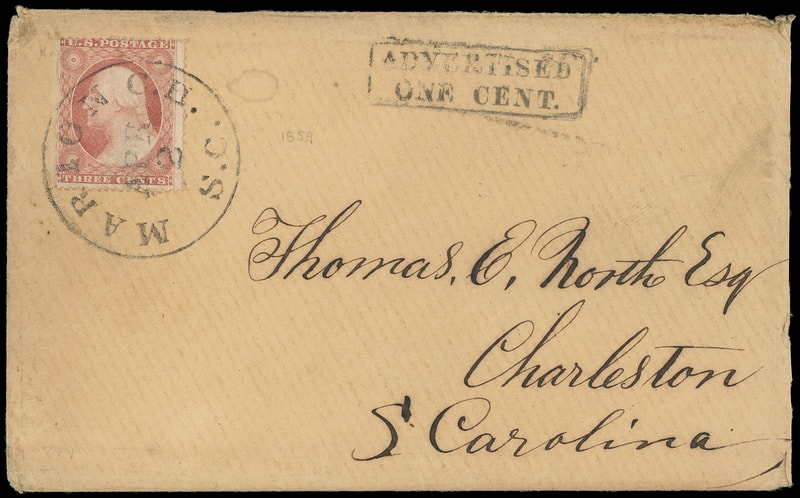 U.S. POSTAGE
THREE CENTS
MARION C.H. S.C.
APR
ADVERTISED
ONE CENT.
1859
Thomas. E. North Esq
Charleston
S. Carolina